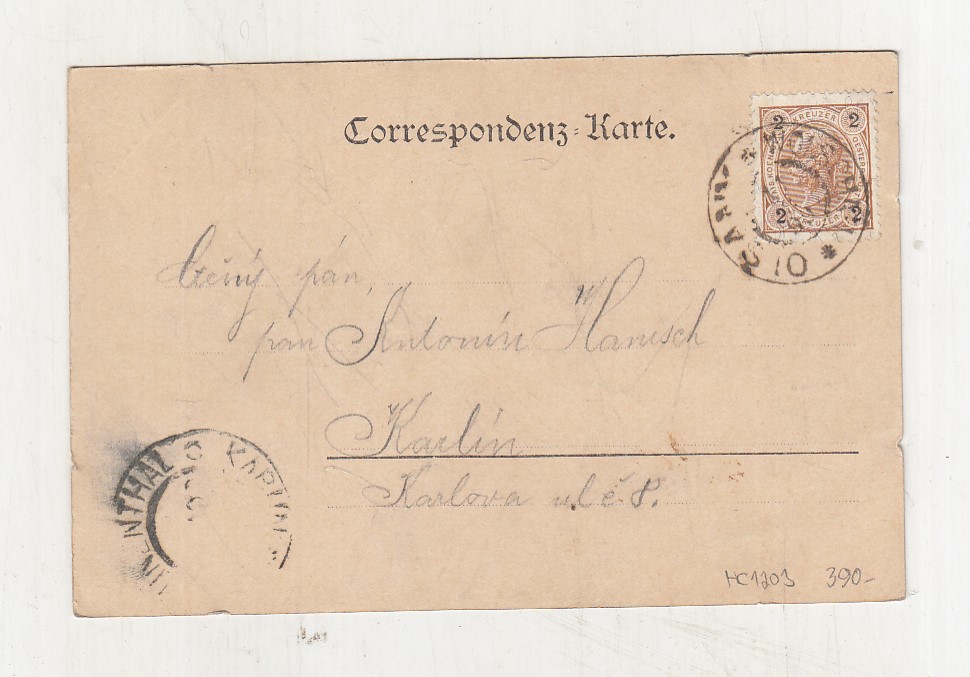 Correspondenz-Karte.
2 KREUZER 2
2 KREUZER 2
Ctěný pán,
pan Antonín Hanisch
Karlín
Karlova ul č 8.
KAROLINENTHAL KARLÍN
HC1203 390-